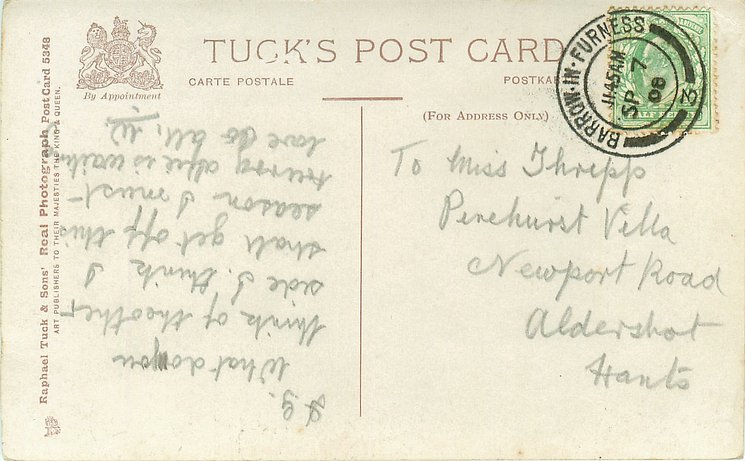 By Appointment
TUCK'S POST CARD
CARTE POSTALE
POSTKA
(FOR ADDRESS ONLY)
Raphael Tuck & Sons' Real Photograph Post Card 5348
ART PUBLISHERS TO THEIR MAJESTIES THE KING & QUEEN.
BARROW-IN-FURNESS
1145AM
SP 7
08
3
HALF
To Miss Thripp
Pinehurst Villa
Newport Road
Aldershot
Hants
What do you
think of the other
side I think I
shall get off this
season I must
hurry also is wait
love to all.